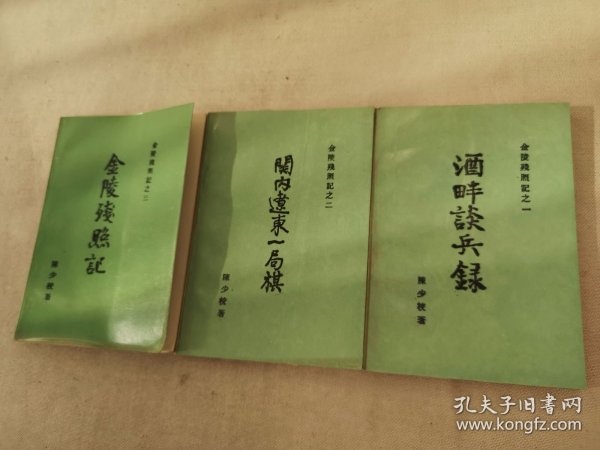 金陵殘照記之三
金陵殘照記
陳少校著
金陵殘照記之二
関内遼東一局棋
陳少校著
金陵殘照記之一
酒畔談兵録
陳少校著
孔夫子旧书网
www.kongfz.com